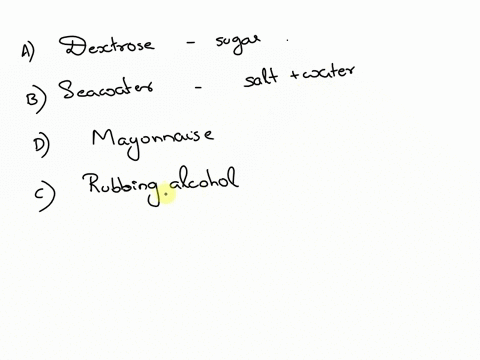 A) Dextrose - sugar .
B) Seawater - salt + water
D) Mayonnaise
C) Rubbing alcohol